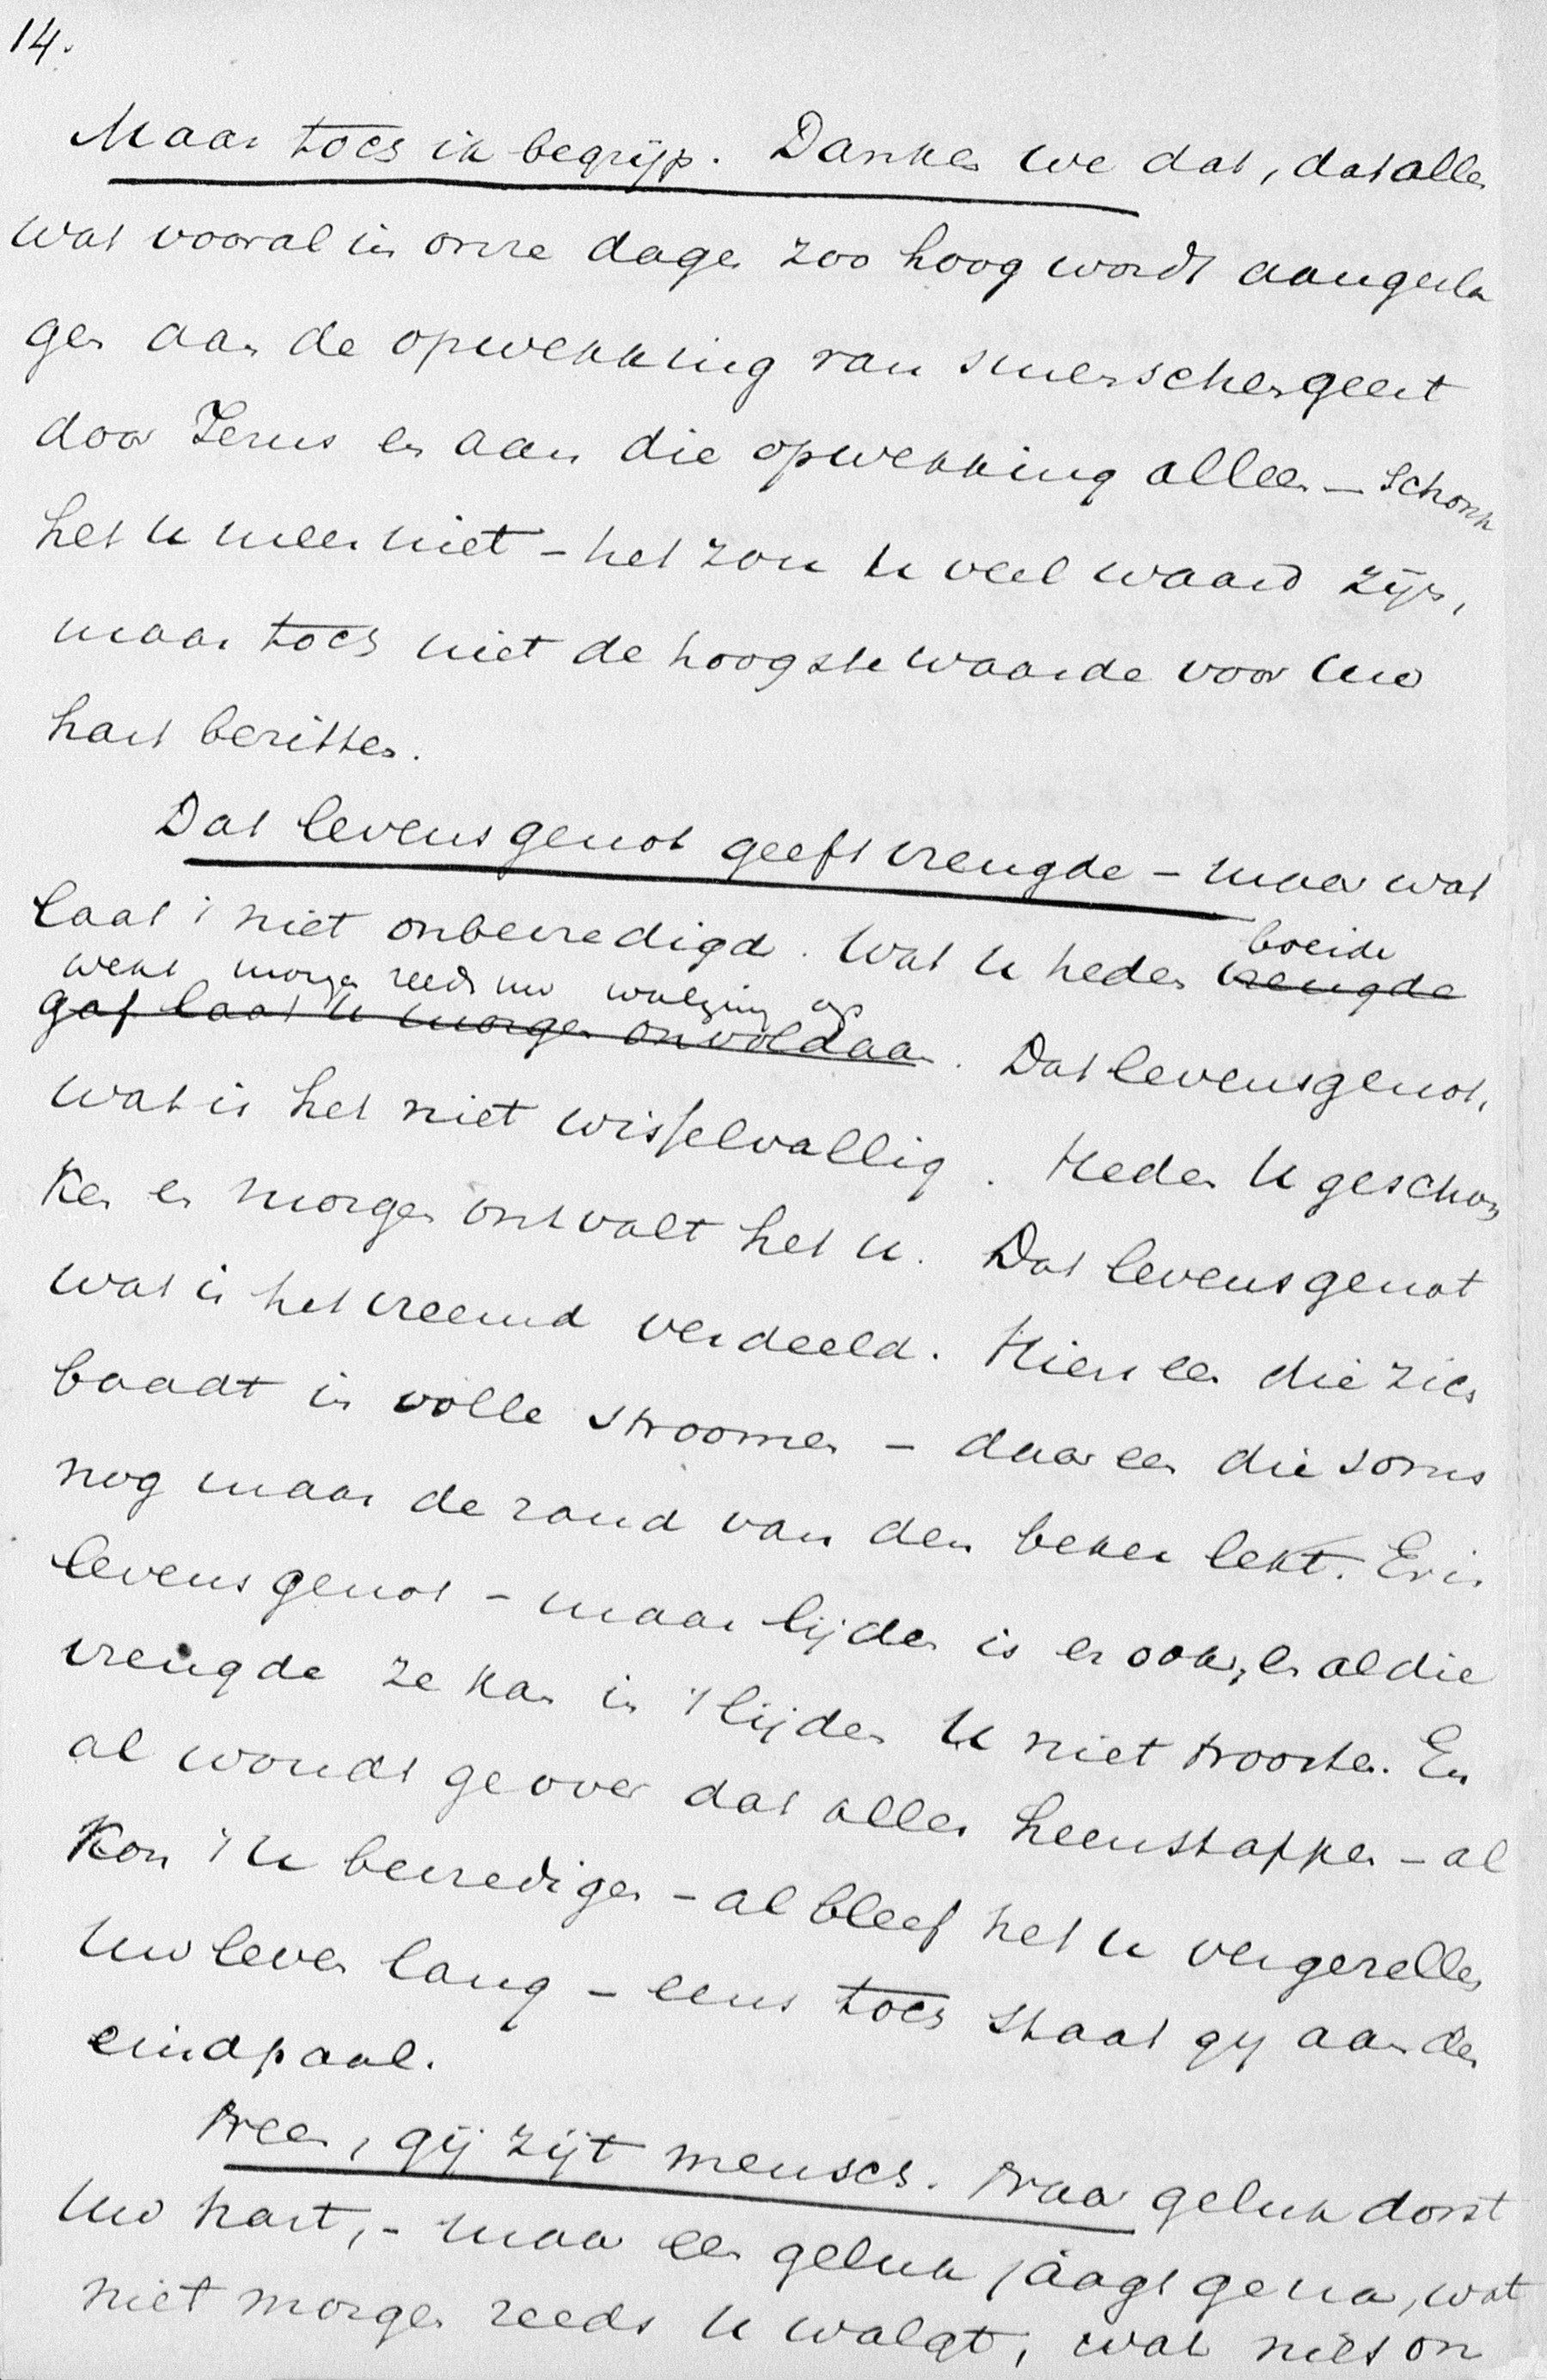 14.
Maar toch ik begrijp. Danken we dat, dat alles
wat vooral in onze dagen zoo hoog wordt aangesla
gen aan de opwekking van s'menschen geest
door Jezus en aan die opwekking alleen – schonk
het u meer niet – het zou u veel waard zijn,
maar toch niet de hoogste waarde voor uw
hart bezitten.
Dat levensgenot geeft vreugde – maar wat
laat 't niet onbevredigd. Wat u heden boeide
vreugde
wekt morgen reeds uw walging op
gaf laat u morgen onvoldaan. Dat levensgenot,
wat is het niet wisselvallig. Heden u geschon
ken en morgen ontvalt het u. Dat levensgenot
wat is het vreemd verdeeld. Hier een die zich
baadt in volle stroomen – daar een die soms
nog maar de rand van den beker lekt. Er is
levensgenot – maar lijden is er ook, en al die
vreugde ze kan in 't lijden u niet troosten. En
al woudt ge over dat alles heenstappen – al
kon 't u bevredigen – al bleef het u vergezellen
uw leven lang – eens toch staat gij aan den
eindpaal.
Neen, gij zijt mensch. Naar geluk dorst
uw hart, – maar een geluk jaagt ge na, wat
niet morgen reeds u walgt, wat niet on